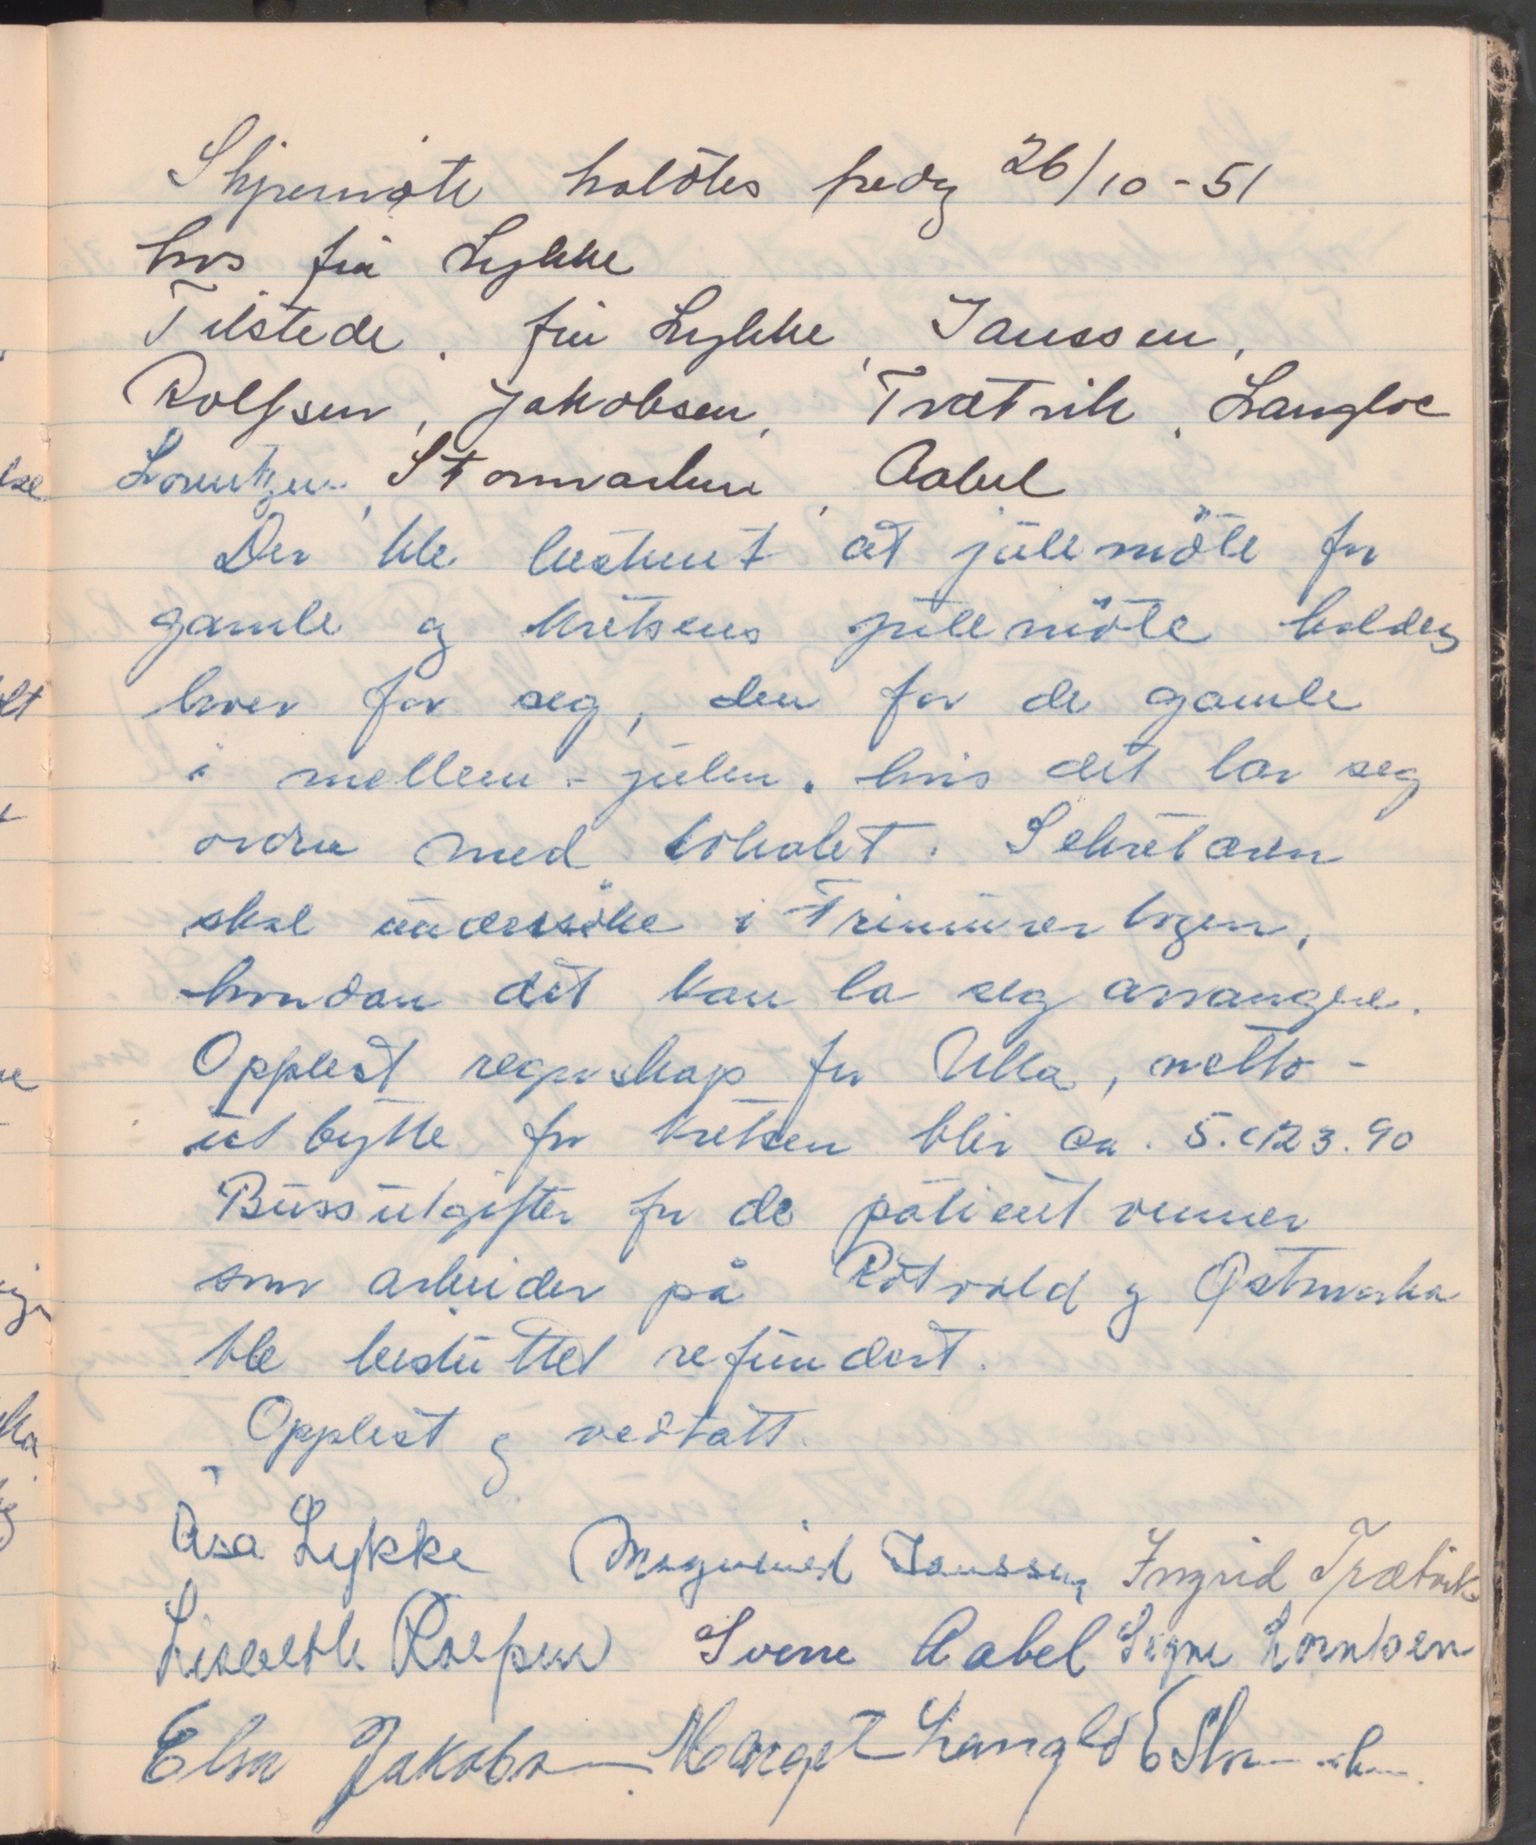 Styremöte holdtes fredag 26/10-51
hos fru Lykke
Tilstede. fru Lykke, Janssen,
Rolfsen, Jakobsen, Trætvik, Langloe
Lorentzen, Stormarken, Aabel
Der ble bestemt at jule möte for
gamle og kretsens jule möte holdes
hver for seg, den for de gamle
i mellem-julen, hvis det lar seg
ordne med lokalet. Sekretæren
skal undersöke i Frimurerlogen,
hvordan det kan la seg arrangere.
Opplest regnskap for Uka, netto-
utbytte for kretsen blir ca. 5.123.90
Bussutgifter for de patientvenner
som arbeider på Rotvold og Østmarka
ble besluttet refundert.
Opplest og vedtatt.
Åsa Lykke Janssen Ingrid Trætvik
Liesbeth Rolfsen Sverre Aabel Signe Lorentzen
Elsa Jakobsen Margit Langlo